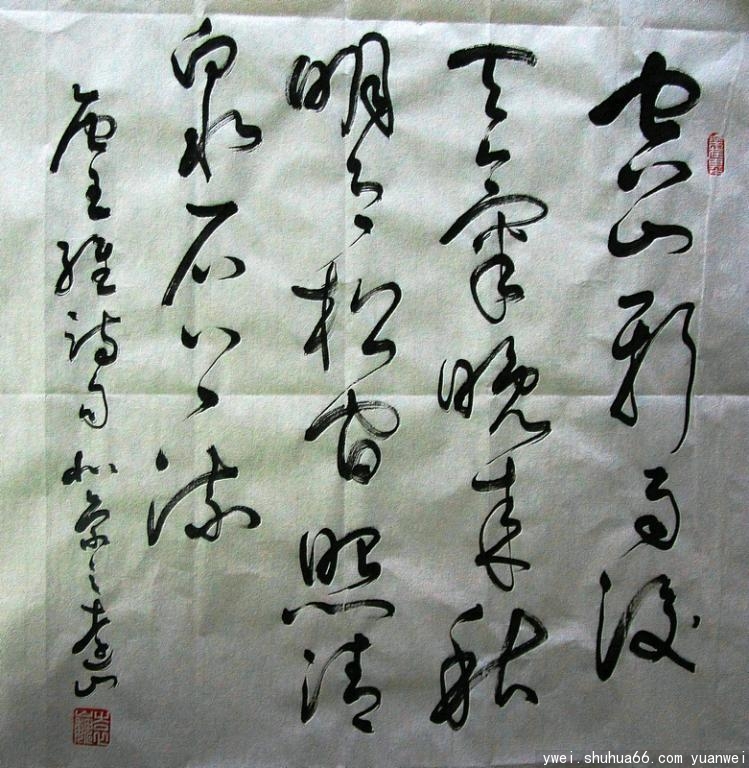 空山新雨後
天氣晚来秋
明月松间照清
泉石上流
唐王维诗句北京
ywei.shuhua66.com yuanwei